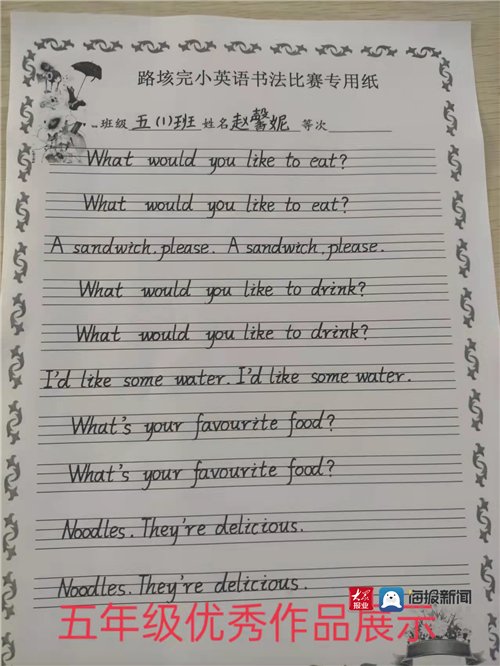 路垓完小英语书法比赛专用纸
班级 五(1)班 姓名 赵馨妮 等次
What would you like to eat?
What would you like to eat?
A sandwich, please. A sandwich, please.
What would you like to drink?
What would you like to drink?
I'd like some water. I'd like some water.
What's your favourite food?
What's your favourite food?
Noodles. They're delicious.
Noodles. They're delicious.
大众报业 海报新闻
五年级优秀作品展示